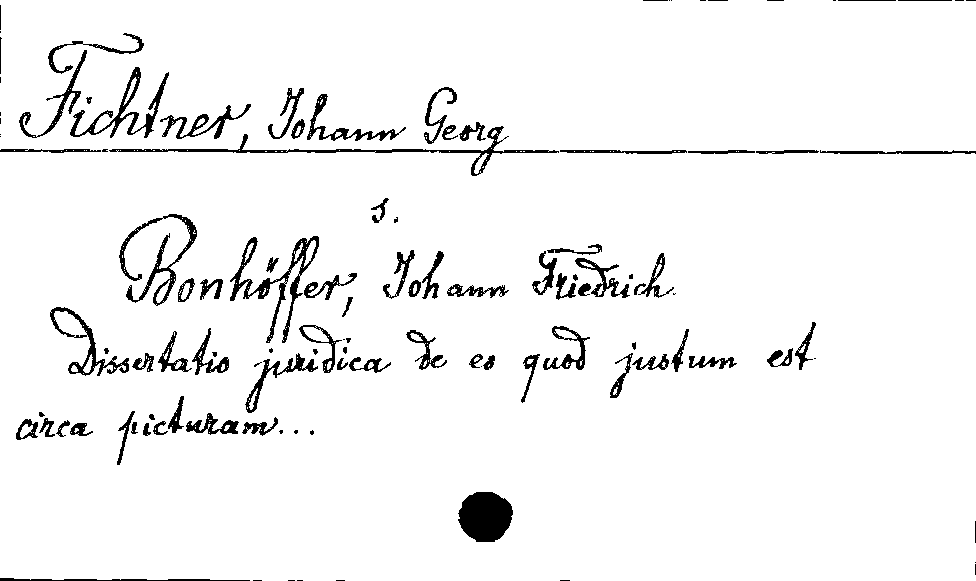 Fichtner, Johann Georg
s.
Bonhöffer, Johann Friedrich
Dissertatio juridica de eo quod justum est
circa picturam...